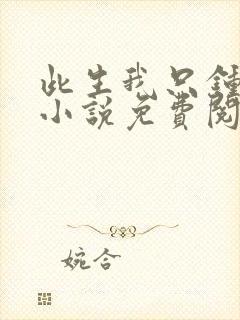 此生我只鍾
小說免費閱
婉合